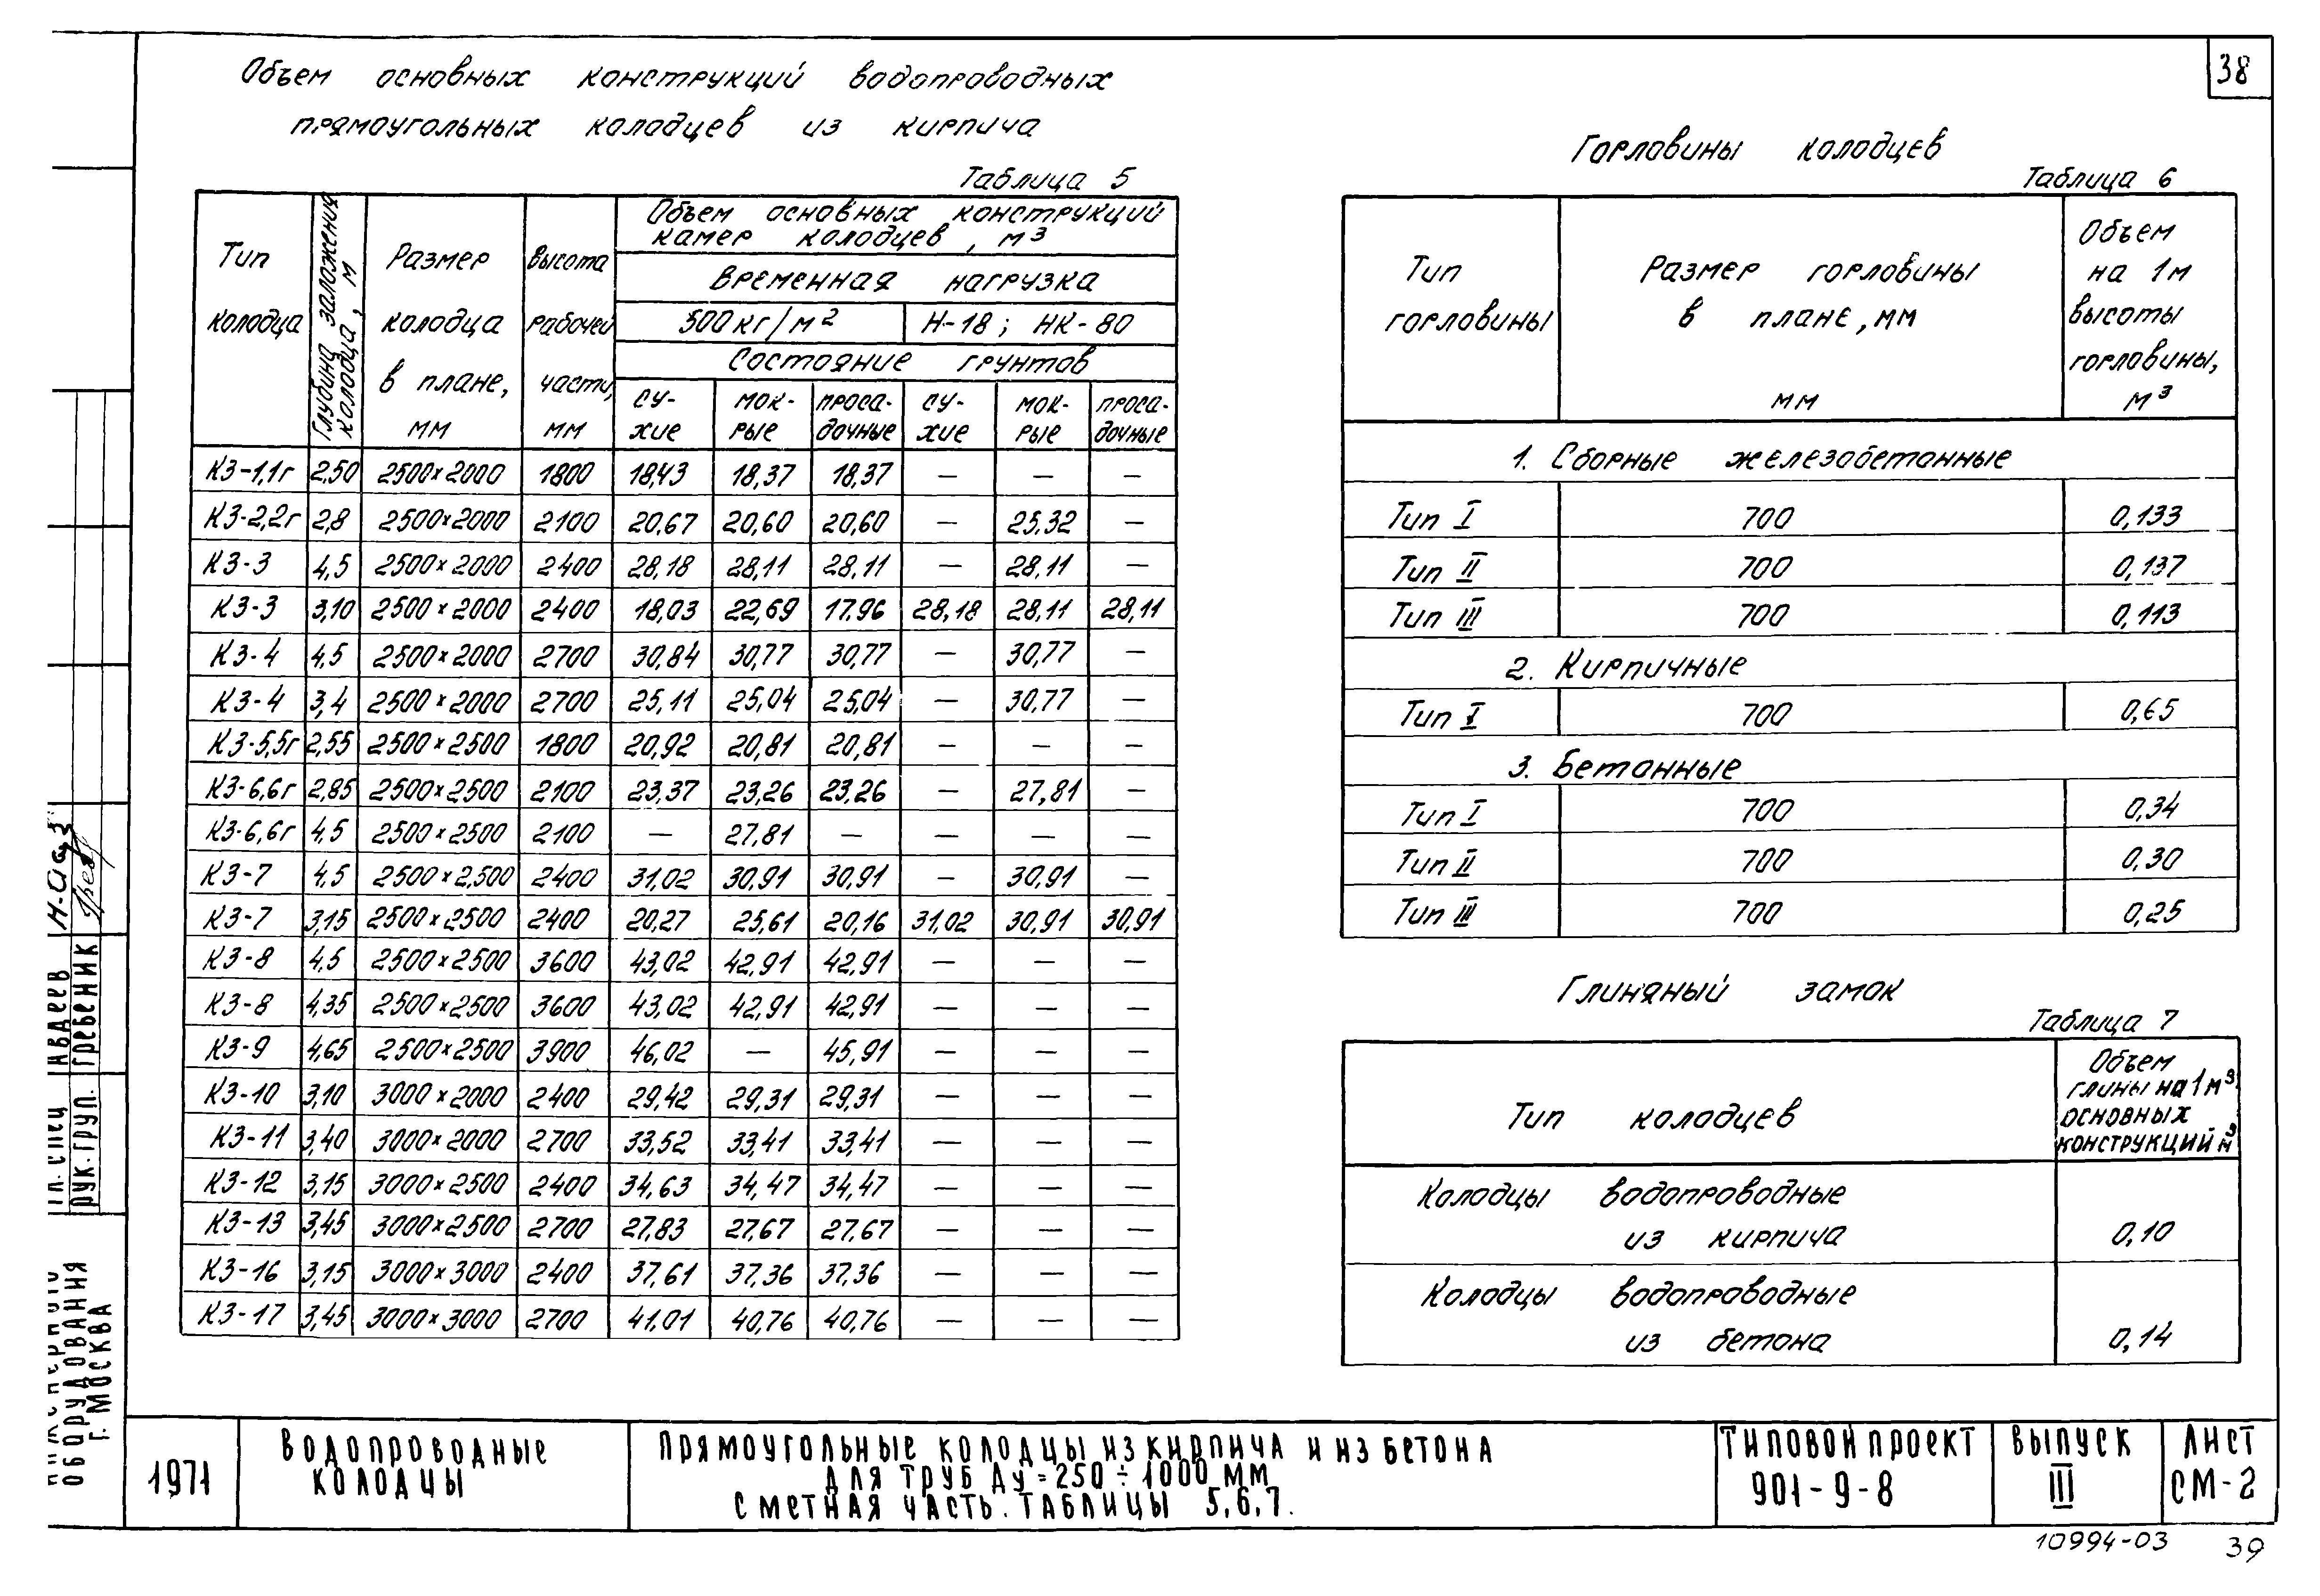 38
Объем основных конструкций водопроводных
прямоугольных колодцев из кирпича
Таблица 5
Тип колодца | Глубина заложения колодца, м | Размер колодца в плане, мм | Высота рабочей части, мм | Объем основных конструкций камер колодцев, м³
Временная нагрузка
500 кг/м² | Н-18; НК-80
Состояние грунтов
су-хие | мок-рые | проса-дочные | су-хие | мок-рые | проса-дочные
КЗ-1,1г 2,50 2500×2000 1800 18,43 18,37 18,37 — — —
КЗ-2,2г 2,8 2500×2000 2100 20,67 20,60 20,60 — 25,32 —
КЗ-3 4,5 2500×2000 2400 28,18 28,11 28,11 — 28,11 —
КЗ-3 3,10 2500×2000 2400 18,03 22,69 17,96 28,18 28,11 28,11
КЗ-4 4,5 2500×2000 2700 30,84 30,77 30,77 — 30,77 —
КЗ-4 3,4 2500×2000 2700 25,11 25,04 25,04 — 30,77 —
КЗ-5,5г 2,55 2500×2500 1800 20,92 20,81 20,81 — — —
КЗ-6,6г 2,85 2500×2500 2100 23,37 23,26 23,26 — 27,81 —
КЗ-6,6г 4,5 2500×2500 2100 — 27,81 — — — —
КЗ-7 4,5 2500×2,500 2400 31,02 30,91 30,91 — 30,91 —
КЗ-7 3,15 2500×2500 2400 20,27 25,61 20,16 31,02 30,91 30,91
КЗ-8 4,5 2500×2500 3600 43,02 42,91 42,91 — — —
КЗ-8 4,35 2500×2500 3600 43,02 42,91 42,91 — — —
КЗ-9 4,65 2500×2500 3900 46,02 — 45,91 — — —
КЗ-10 3,10 3000×2000 2400 29,42 29,31 29,31 — — —
КЗ-11 3,40 3000×2000 2700 33,52 33,41 33,41 — — —
КЗ-12 3,15 3000×2500 2400 34,63 34,47 34,47 — — —
КЗ-13 3,45 3000×2500 2700 27,83 27,67 27,67 — — —
КЗ-16 3,15 3000×3000 2400 37,61 37,36 37,36 — — —
КЗ-17 3,45 3000×3000 2700 41,01 40,76 40,76 — — —
Горловины колодцев
Таблица 6
Тип горловины | Размер горловины в плане, мм мм | Объем на 1м высоты горловины, м³
1. Сборные железобетонные
Тип I 700 0,133
Тип II 700 0,137
Тип III 700 0,113
2. Кирпичные
Тип I 700 0,65
3. Бетонные
Тип I 700 0,34
Тип II 700 0,30
Тип III 700 0,25
Глиняный замок
Таблица 7
Тип колодцев | Объем глины на 1м³ основных конструкций м³
Колодцы водопроводные
из кирпича 0,10
Колодцы водопроводные
из бетона 0,14
Гл. спец Авдеев
Рук. груп. Гребеник
оборудования
г. Москва
1971
Водопроводные
колодцы
Прямоугольные колодцы из кирпича и из бетона
для труб Ду=250÷1000 мм
Сметная часть. Таблицы 5,6,7.
Типовой проект
901-9-8
Выпуск
III
Лист
СМ-2
10994-03
39